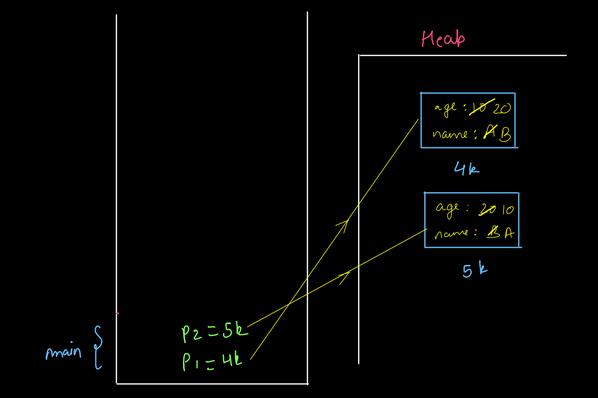 Heap
age : 10 20
name : A B
4k
age : 20 10
name : B A
5k
P2 = 5k
main { P1 = 4k